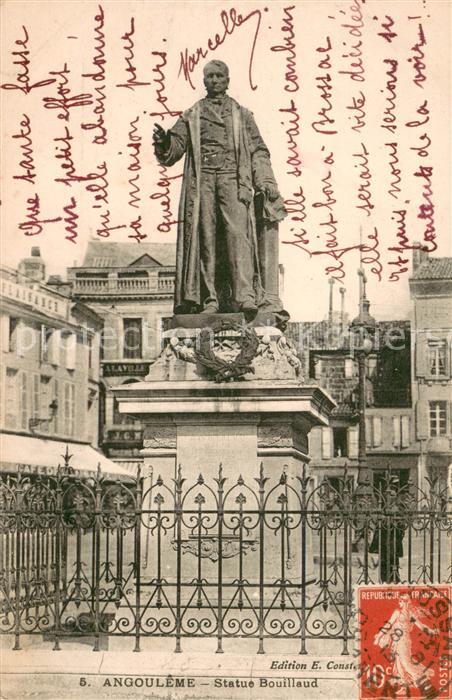 Que tante fasse
un petit effort
qu'elle abandonne
sa maison pour
quelques jours.
Marcelle
si elle savait combien
il fait bon à Brossac
elle serait vite décidée
et puis nous serions si
contents de la voir!
À LA VILLE
5. ANGOULÊME — Statue Bouillaud
Edition E. Const
REPUBLIQUE FRANÇAISE
10
POSTES